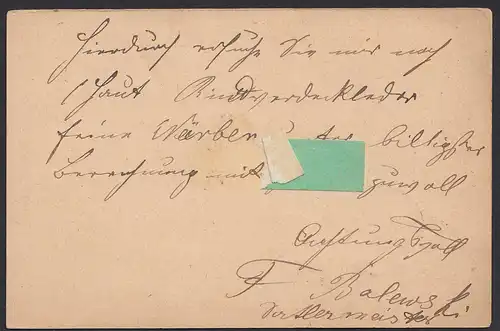 Hierdurch ersuche Sie mir noch
1 Haut Rindverdeckleder
feine Närben unter billigster
Berechnung mit zuwoll
Achtungsvoll
F Balewski
Sattlermeister